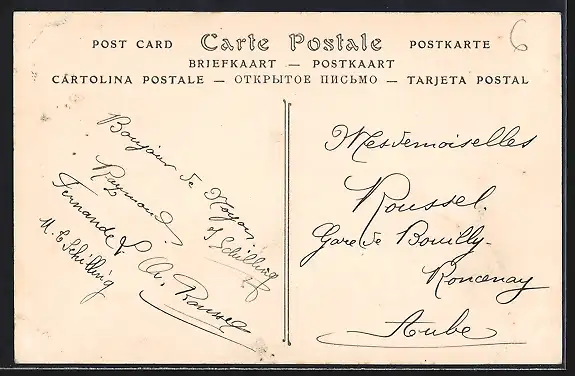 POST CARD Carte Postale POSTKARTE
BRIEFKAART — POSTKAART
CARTOLINA POSTALE — ОТКРЫТОЕ ПИСЬМО — TARJETA POSTAL
6
Bonjour de Noyon
Raymond J Schilling
Fernande &
M. E Schilling
A. Roussel
Mesdemoiselles
Roussel
Gare de Bouilly-
Roncenay
Aube